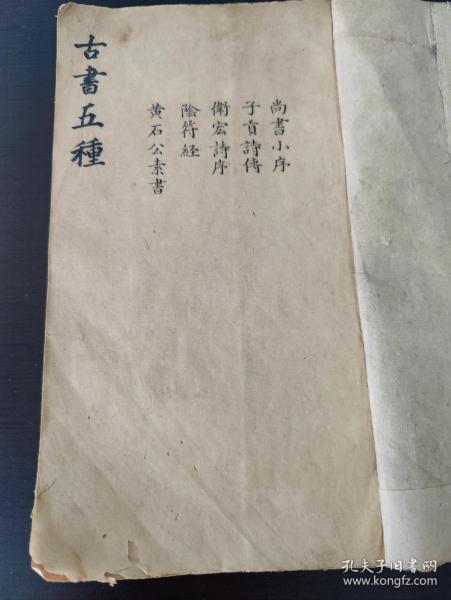 古書五種
尚書小序
子貢詩傳
衛宏詩序
陰符経
黄石公素書
孔夫子旧书网
www.kongfz.com